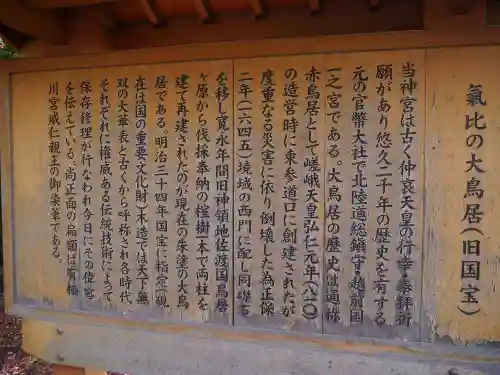 氣比の大鳥居(旧国宝)
当神宮は古く仲哀天皇の行幸、奉拝祈
願があり悠久二千年の歴史を有する
元の官幣大社で北陸道総鎮守・越前国
一之宮である。大鳥居の歴史は通称
赤鳥居として嵯峨天皇弘仁元年(八一〇)
の造営時に東参道口に創建されたが
度重なる災害に依り倒壊した為正保
二年(一六四五)境域の西門に配し同礎
を移し寛永年間旧神領地佐渡国鳥居
ヶ原から伐採奉納の榁樹一本で両柱を
建て再建されたのが現在の朱塗の大鳥
居である。明治三十四年国宝に指定(現
在は国の重要文化財)木造では天下無
双の大華表と古くから呼称され各時代、
それぞれに権威ある伝統技術によって
保存修理が行なわれ今日にその偉容
を伝えている。尚正面の扁額は有栖
川宮威仁親王の御染筆である。